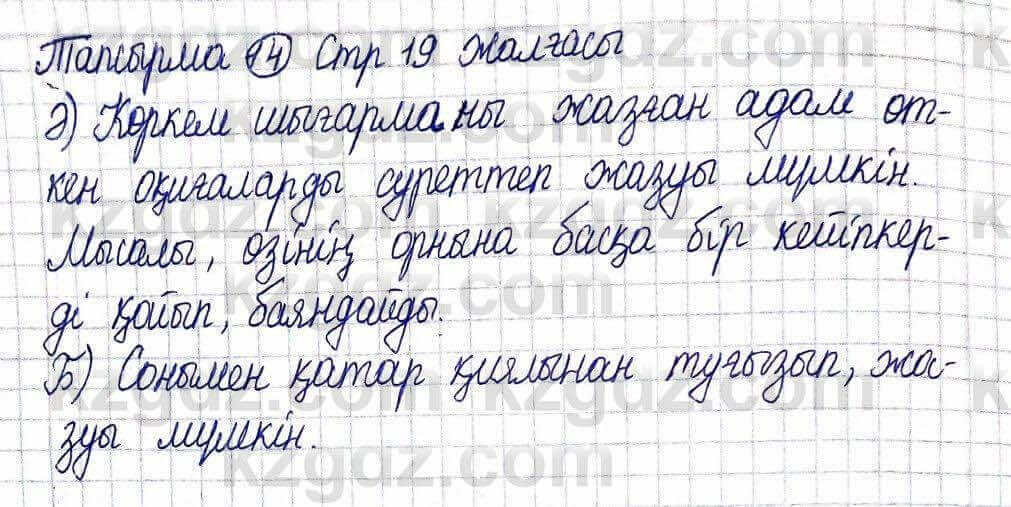 Тапсырма 14 Стр 19 жалғасы
Ә) Көркем шығарманы жазған адам өт-
кен оқиғаларды суреттеп жазуы мүмкін.
Мысалы, өзінің орнына басқа бір кейіпкер-
ді қойып, баяндайды.
Б) Сонымен қатар қиялынан туғызып, жа-
зуы мүмкін.
kzgdz.com